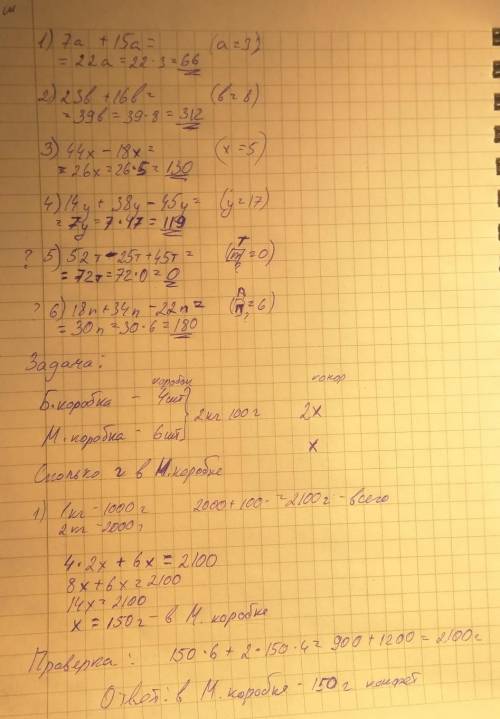 1) 7a + 15a = (a=3)
= 22a = 22·3 = 66
2) 23в + 16в = (в=8)
= 39в = 39·8 = 312
3) 44x - 18x = (x=5)
= 26x = 26·5 = 130
4) 14y + 38y - 45y = (y=17)
= 7y = 7·17 = 119
? 5) 52т - 25т + 45т = (т=0)
= 72т = 72·0 = 0
? 6) 18n + 34n - 22n = (n=6)
= 30n = 30·6 = 180
Задача:
коробки конф
Б. коробка - 4шт } 2кг 100г 2x
М. коробка - 6шт x
Сколько г в М. коробке
1) 1кг - 1000г 2000 + 100 = 2100г - всего
2кг - 2000г
4·2x + 6x = 2100
8x + 6x = 2100
14x = 2100
x = 150г - в М. коробке
Проверка: 150·6 + 2·150·4 = 900 + 1200 = 2100г
Ответ: в М. коробке - 150г конфет